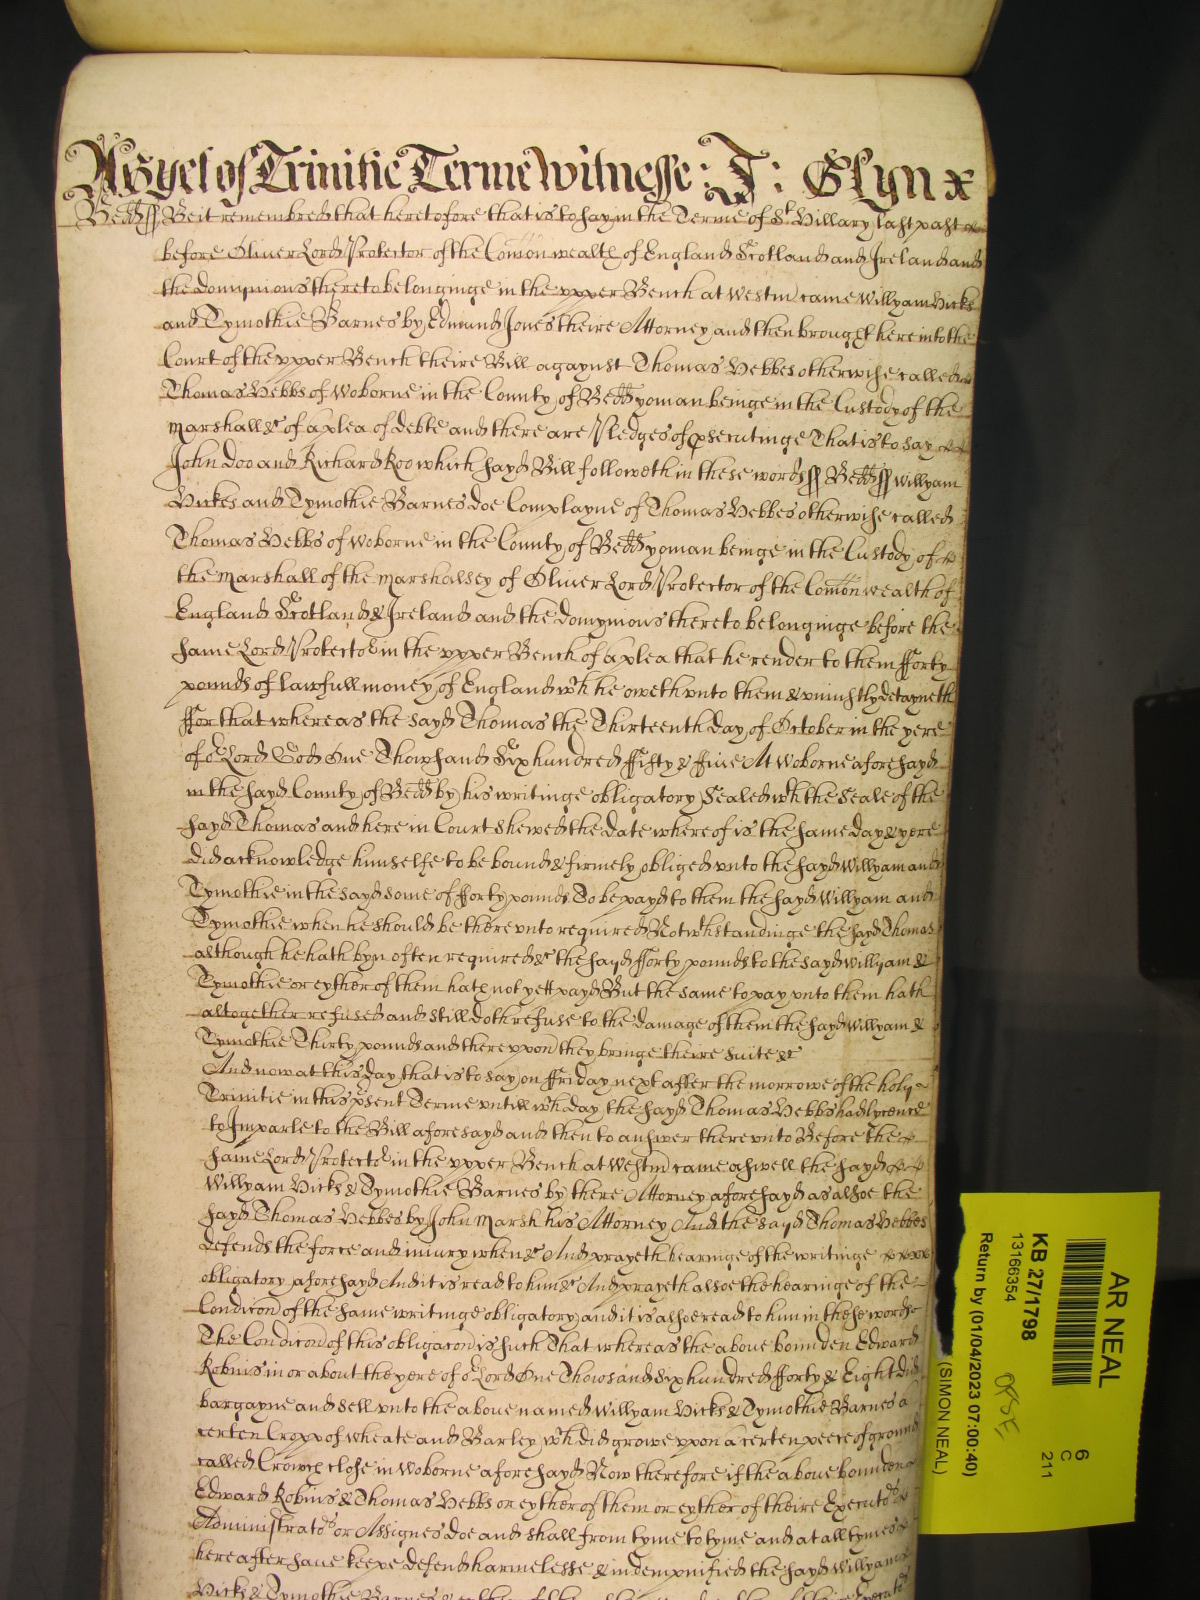 As yet of Trinitie Terme Witnesse : J : Glyn x
Bedd ss Be it remembred that heretofore that is to say in the Terme of St Hillary last past
before Oliver Lord Protector of the Comon wealth of England Scotland and Ireland and
the domynions thereto belonginge in the vpper Bench at Westm came Willyam Hicks
and Tymothie Barnes by Edmund Jones theire Attorney and then brought here into the
Court of the vpper Bench theire Bill agaynst Thomas Hebbes otherwise called
Thomas Hebbs of Woborne in the County of Bedd yoman beinge in the Custody of the
Marshall &c of a plea of debte and there are Pledges of psecutinge That is to say
John Doo and Richard Roo which sayd Bill followeth in these words ss Bedd ss Willyam
Hickes and Tymothie Barnes doe Complayne of Thomas Hebbes otherwise called
Thomas Hebbs of Woborne in the County of Bedd yoman beinge in the Custody of
the Marshall of the Marshalsey of Oliver Lord Protector of the Comon wealth of
England Scotland & Ireland and the domynions thereto belonginge before the
same Lord Protector in the vpper Bench of a plea that he render to them fforty
pounds of lawfull money of England wch he oweth vnto them & viniustly detayneth
ffor that whereas the sayd Thomas the Thirteenth day of October in the yere
of or Lord God One Thowsand Six hundred ffifty & ffiue At Woborne aforesayd
in the sayd County of Bedd by his writinge obligatory Sealed wth the Seale of the
sayd Thomas and here in Court shewed the date whereof is the same day & yere
did acknowledge himselfe to be bound & firmely obliged vnto the sayd Willyam and
Tymothie in the sayd some of fforty pounds To be payd to them the sayd Willyam and
Tymothie when he should be there vnto required Notwthstandinge the sayd Thomas
although he hath byn often required &c the sayd fforty pounds to the sayd Willyam &
Tymothie or eyther of them hath not yett payd But the same to pay vnto them hath
altogether refused and still doth refuse to the damage of them the sayd Willyam &
Tymothie Thirty pounds and there vpon they bringe theire suite &c
And now at this day that is to say on ffriday next after the morrowe of the holy
Trinitie in this psent Terme vntill wch day the sayd Thomas Hebbs had lycence
to Imparle to the Bill aforesayd and then to answer there vnto Before the
same Lord Protector in the vpper Bench at Westm came aswell the sayd
Willyam Hicks & Tymothie Barnes by there Attorney aforesayd as alsoe the
sayd Thomas Hebbes by John Marsh his Attorney And the sayd Thomas Hebbes
defends the force and iniury when &c And prayeth hearinge of the writinge
obligatory aforesayd And it is read to him &c And prayeth alsoe the hearinge of the
Condicon of the same writinge obligatory and it is alsoe read to him in these words
The Condicon of this obligacon is such That whereas the aboue bounden Edward
Robins in or about the yere of or Lord One Thowsand six hundred fforty & Eight did
bargayne and sell vnto the aboue named Willyam Hicks & Tymothie Barnes a
certen Cropp of wheate and Barley wch did growe vpon a certen peece of ground
called Crowch close in Woborne aforesayd Now therefore if the aboue bounden
Edward Robins & Thomas Hebbs or eyther of them or eyther of theire Executors
Administrators or Assignes doe and shall from tyme to tyme and at all tymes
hereafter saue keepe defend harmelesse & indempnified the sayd Willyam
Hicks & Tymothie Barnes
AR NEAL
KB 27/1798
13166354
Return by (01/04/2023 07:00:40)
(SIMON NEAL)
6
C
211